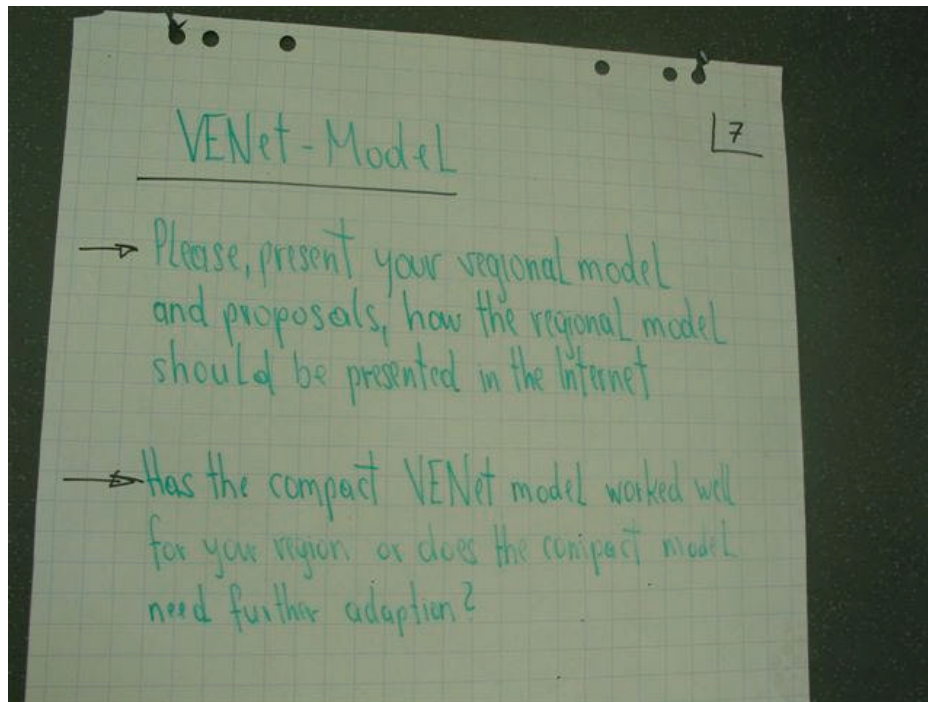 VENet-Model
7
→ Please, present your regional model
and proposals, how the regional model
should be presented in the Internet
→ Has the compact VENet model worked well
for your region or does the compact model
need further adaption?